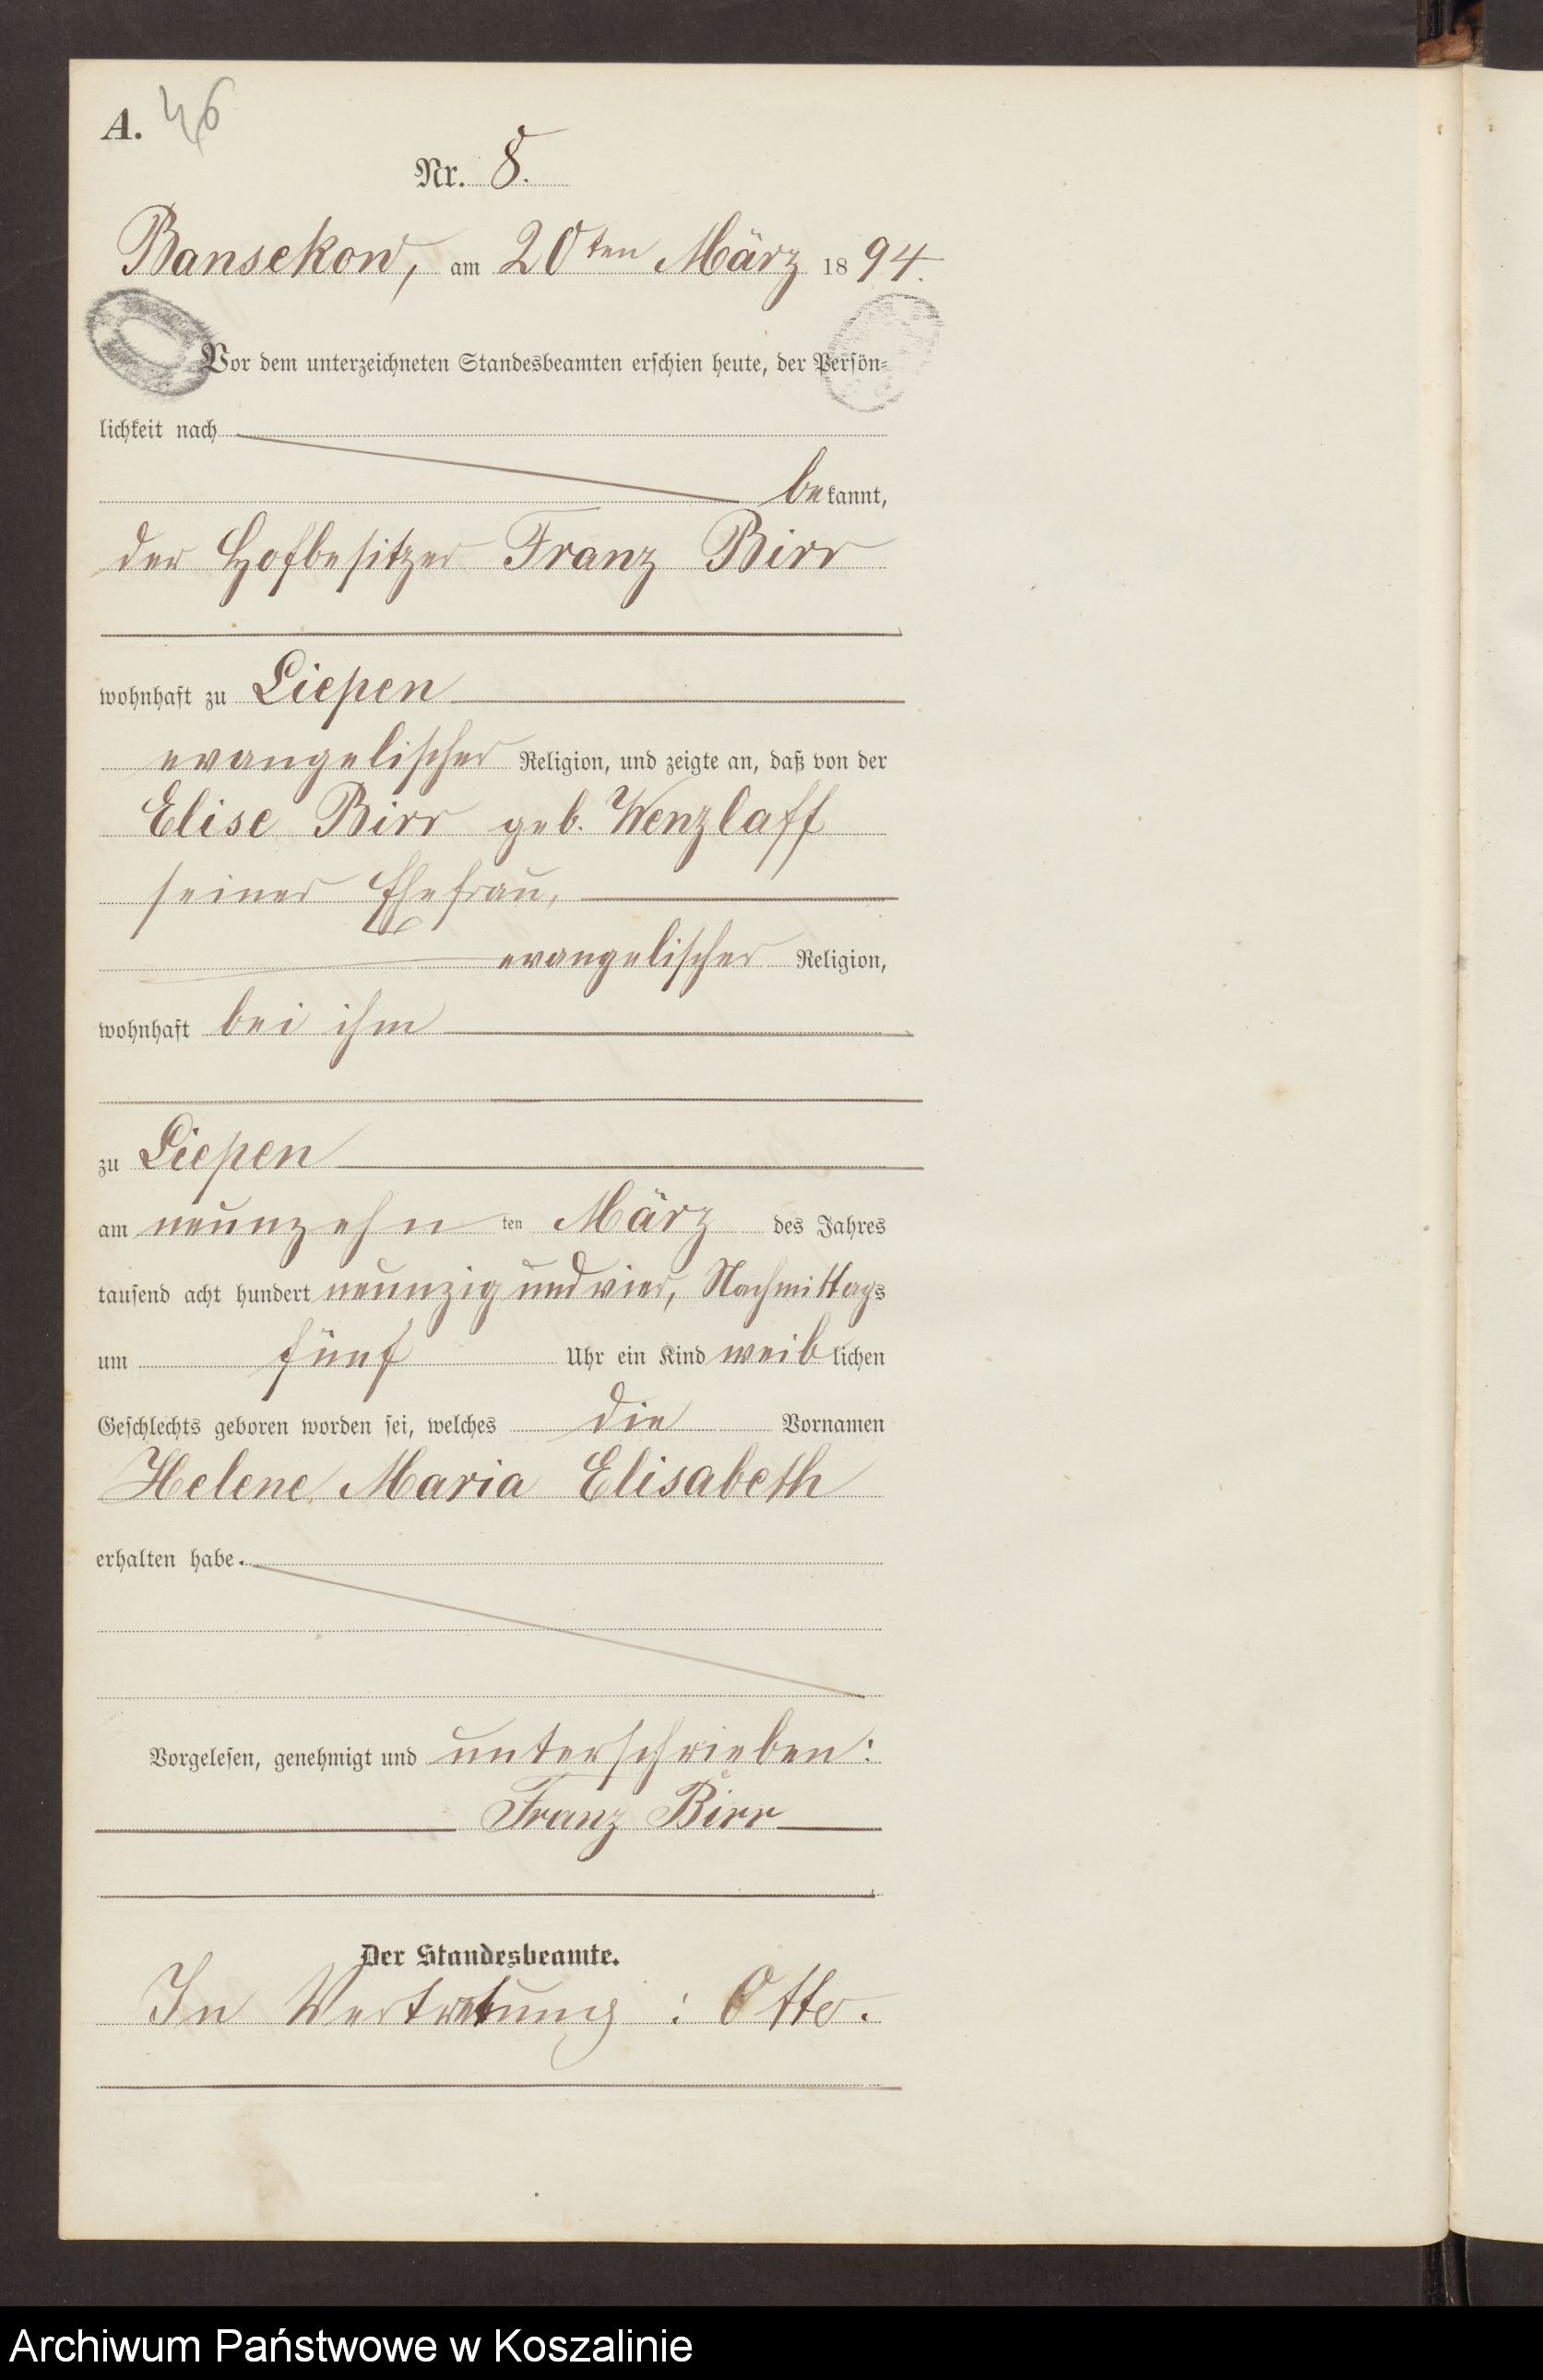 A. 46
Nr. 8.
Bansekow, am 20ten März 1894.
Vor dem unterzeichneten Standesbeamten erschien heute, der Persön-
lichkeit nach
bekannt,
der Hofbesitzer Franz Birr
wohnhaft zu Liepen
evangelischer Religion, und zeigte an, daß von der
Elise Birr geb. Wenzlaff
seiner Ehefrau,
evangelischer Religion,
wohnhaft bei ihm
zu Liepen
am neunzehn ten März des Jahres
tausend acht hundert neunzig und vier, Nachmittags
um fünf Uhr ein Kind weiblichen
Geschlechts geboren worden sei, welches die Vornamen
Helene Maria Elisabeth
erhalten habe.
Vorgelesen, genehmigt und unterschrieben:
Franz Birr
Der Standesbeamte.
In Vertretung: Otto.
Archiwum Państwowe w Koszalinie